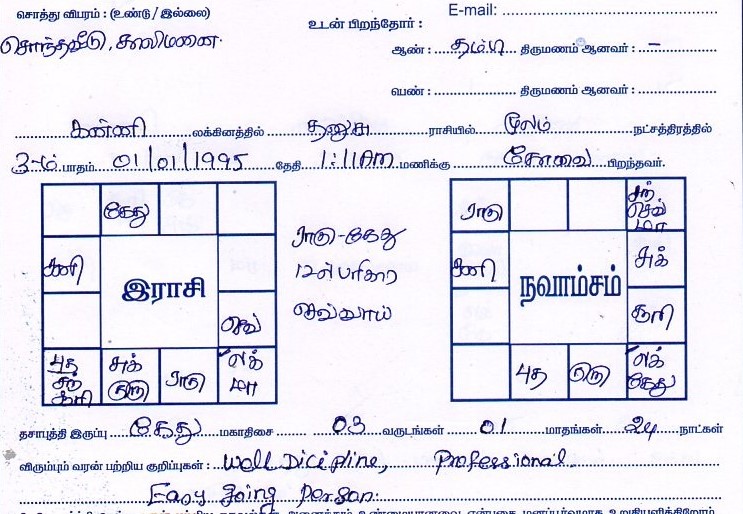 சொத்து விபரம் : (உண்டு / இல்லை)
சொந்தவீடு, காலிமனை.
E-mail:
உடன் பிறந்தோர் :
ஆண் : தம்பி திருமணம் ஆனவர் : –
பெண் : திருமணம் ஆனவர் :
கன்னி லக்கினத்தில் தனுசு ராசியில் மூலம் நட்சத்திரத்தில்
3-ம் பாதம் 01/01/1995 தேதி 1:11AM மணிக்கு கோவை பிறந்தவர்.
கேது
சனி
இராசி
செவ்
புத
சுக்
குரு
ராகு
லக்
மா
ராகு-கேது
செவ்வாய்
ராகு
செவ்
மா
சனி
சுக்
நவாம்சம்
புத
குரு
லக்
கேது
தசாபுத்தி இருப்பு கேது மகாதிசை 03 வருடங்கள் 01 மாதங்கள் 24 நாட்கள்
விரும்பும் வரன் பற்றிய குறிப்புகள் : Well Dicipline, Professional
Easy going person.